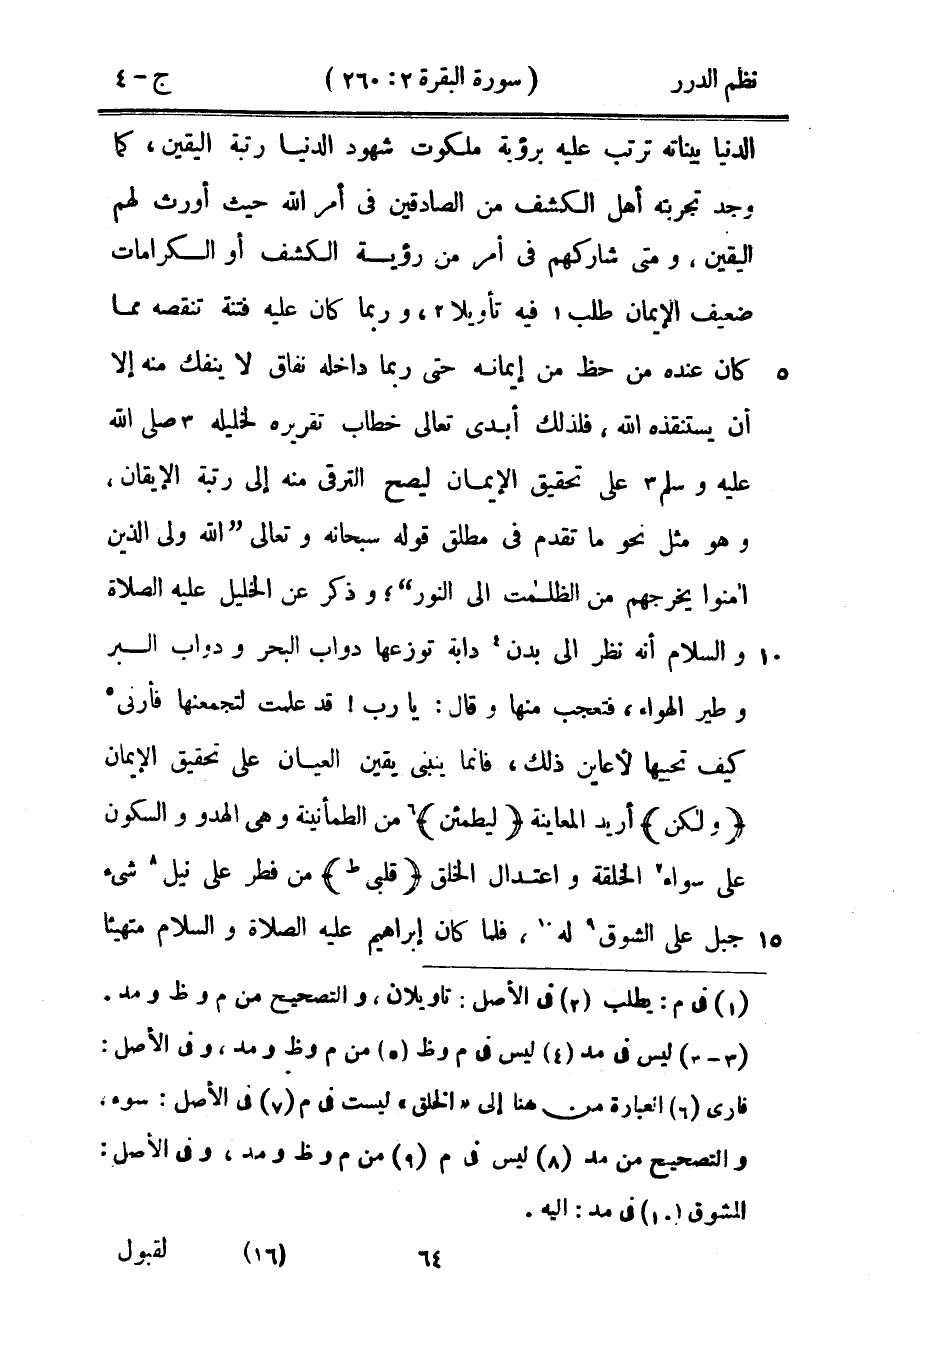 نظم الدرر ( سورة البقرة ٢ : ٢٦٠ ) ج – ٤
الدنيا بيناته ترتب عليه برؤية ملكوت شهود الدنيا رتبة اليقين ، كما
وجد تجربته أهل الكشف من الصادقين فى أمر الله حيث أورث لهم
اليقين ، و متى شاركهم فى أمر من رؤية الكشف أو الكرامات
ضعيف الإيمان طلب١ فيه تأويلا٢ ، و ربما كان عليه فتنة تنقصه مما
٥ كان عنده من حظ من إيمانه حتى ربما داخله نفاق لا ينفك منه إلا
أن يستنقذه الله ، فلذلك أبدى تعالى خطاب تقريره لخليله ٣صلى الله
عليه و سلم٣ على تحقيق الإيمان ليصح الترقى منه إلى رتبة الإيقان ،
و هو مثل نحو ما تقدم فى مطلق قوله سبحانه و تعالى ”الله ولى الذين
اٰمنوا يخرجهم من الظلمٰت الى النور“؛ و ذكر عن الخليل عليه الصلاة
١٠ و السلام أنه نظر الى بدن٤ دابة توزعها دواب البحر و دواب البر
و طير الهواء ، فتعجب منها و قال : يا رب ! قد علمت لتجمعنها فأرنى٥
كيف تحييها لأعاين ذلك ، فانما ينبنى يقين العيان على تحقيق الإيمان
﴿ و لٰكن ﴾ أريد المعاينة ﴿ ليطمئن ﴾٦ من الطمأنينة و هى الهدو و السكون
على سواء٧ الخلقة و اعتدال الخلق ﴿ قلبى ط ﴾ من فطر على نيل٨ شىء
١٥ جبل على الشوق٩ له١٠ ، فلما كان إبراهيم عليه الصلاة و السلام متهيئا
(١) فى م : يطلب (٢) فى الأصل : تاويلان ، و التصحيح من م و ظ و مد .
(٣ – ٣) ليس فى مد (٤) ليس فى م و ظ (٥) من م و ظ و مد ، و فى الأصل :
فارى (٦) العبارة من هنا إلى « الخلق » ليست فى م (٧) فى الأصل : سوء ،
و التصحيح من مد (٨) ليس فى م (٩) من م و ظ و مد ، و فى الأصل :
المشوق (١٠) فى مد : اليه .
٦٤ (١٦) لقبول